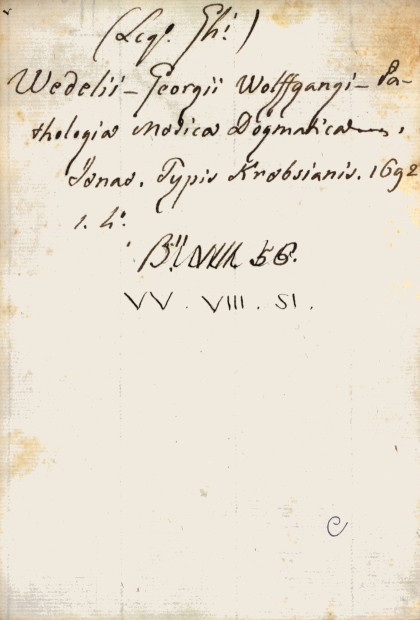 Wedelii - Georgii Wolffgangi - Pa-
thologia Medica Dogmatica
Jenae. Typis Krebsianis. 1692
1. 4°.
56.
VV. VIII. SI.
C